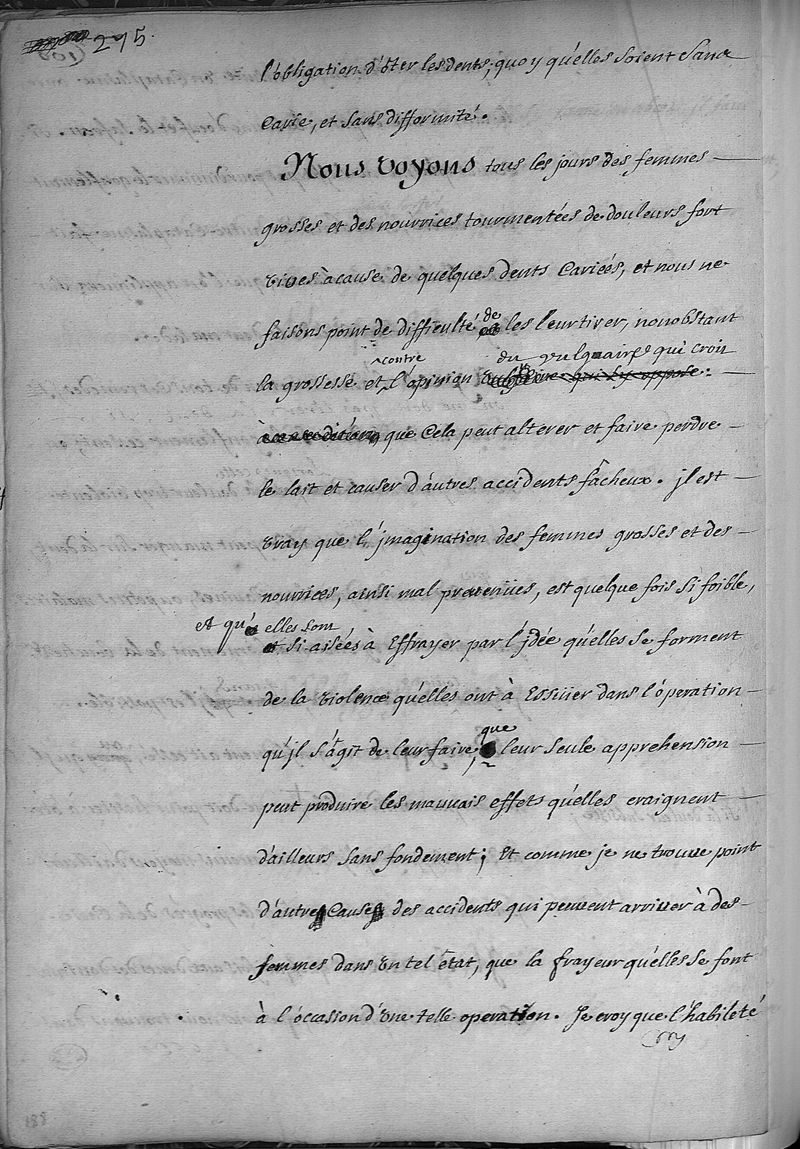 295.
l'obligation d'ôter les dents, quoy qu'elles soient sans
Carie, et sans difformité.
Nous voyons tous les jours des femmes
grosses et des nourrices tourmentées de douleurs fort
vives à cause de quelques dents Cariées, et nous ne
faisons point de difficulté de les leur tirer, nonobstant
la grossesse et contre l'opinion du vulguaire qui croit
que Cela peut alterer et faire perdre
le lait et causer d'autres accidents fâcheux. jl est
vray que l'jmagination des femmes grosses et des
nourrices, ainsi mal prevenües, est quelque fois si foible,
et qu'elles sont
si aisées à Effrayer par l'jdée qu'elles se forment
de la violence qu'elles ont à Essuier dans l'operation
qu'jl s'agit de leur faire, que leur seule apprehension
peut produire les mauvais effets qu'elles craignent
d'ailleurs sans fondement; Et comme je ne trouve point
d'autre Cause des accidents qui peuvent arriver à des
femmes dans un tel état, que la frayeur qu'elles se font
à l'occassion d'une telle operation. Je croy que l'habileté
188